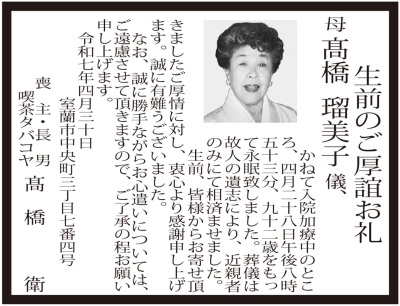 生前のご厚誼お礼
母 髙橋 瑠美子 儀、
かねて入院加療中のとこ
ろ、四月二十八日午後八時
五十三分、九十二歳をもっ
て永眠致しました。葬儀は
故人の遺志により、近親者
のみにて相済ませました。
生前、皆様からお寄せ頂
きましたご厚情に対し、衷心より感謝申し上げ
ます。誠に有難うございました。
なお、誠に勝手ながらお心遣いについては、
ご遠慮させて頂きますので、ご了承の程お願い
申し上げます。
令和七年四月三十日
室蘭市中央町三丁目七番四号
喪主・長男
喫茶タバコヤ
髙橋 衛